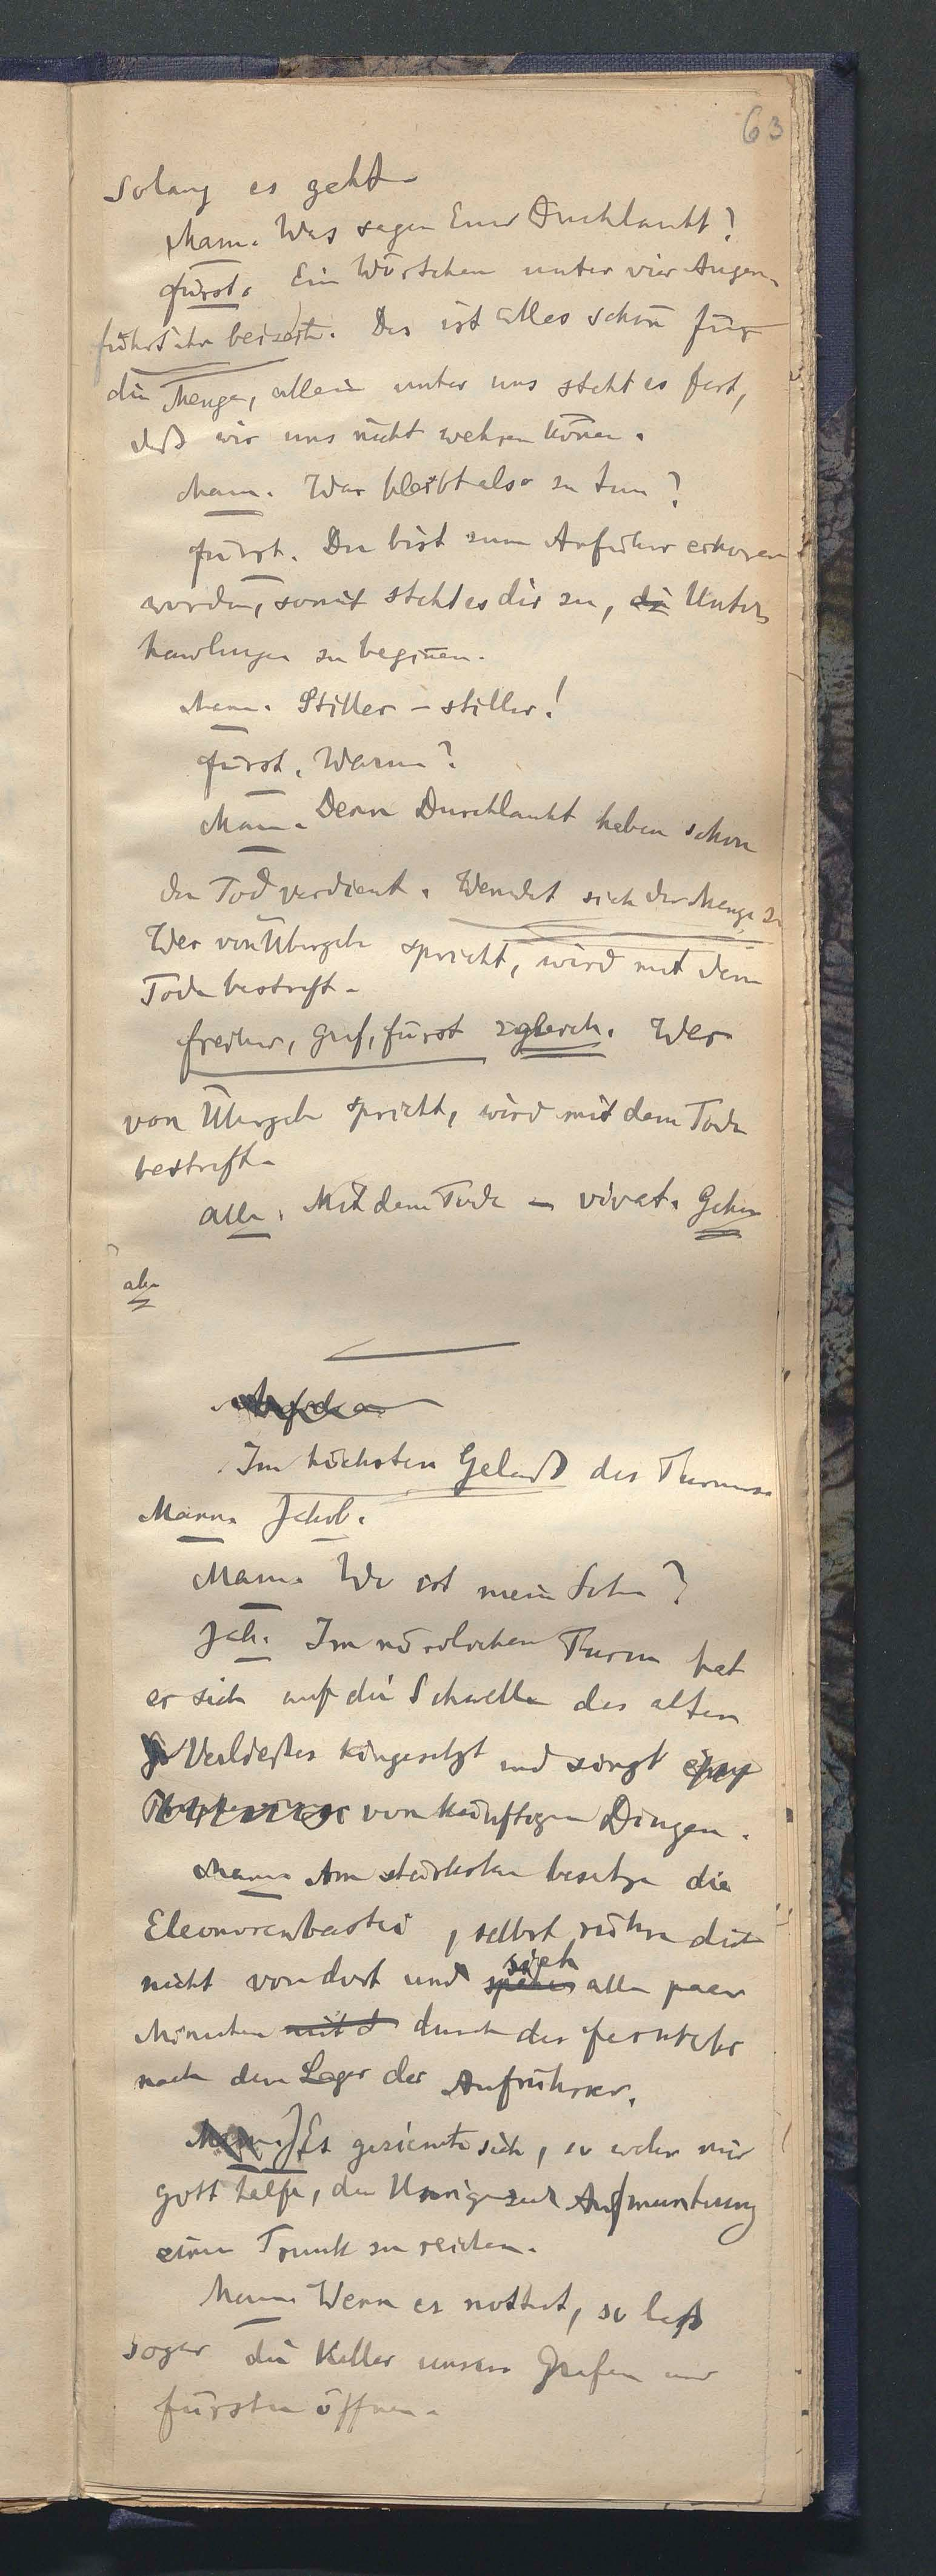 63
solang es geht.
Mann. Was sagen Euer Durchlaucht?
Fürst. Ein Wörtchen unter vier Augen.
führt ihn beiseite. Das ist alles schön für
die Menge, allein unter uns steht es fest,
daß wir uns nicht wehren können.
Mann. Was bleibt also zu tun?
Fürst. Du bist zum Anführer erkoren
worden, somit steht es dir zu, die Unter
handlungen zu beginnen.
Mann. Stiller – stiller!
Fürst. Warum?
Mann. Denn Durchlaucht haben schon
den Tod verdient. Wendet sich der Menge zu
Wer von Übergabe spricht, wird mit dem
Tode bestraft.
Freiherr, Graf, Fürst zugleich. Wer
von Übergabe spricht, wird mit dem Tode
bestraft.
Alle. Mit dem Tode – vivat. Gehen
ab.
Im höchsten Gelaß des Thurmes.
Mann. Jakob.
Mann. Wo ist mein Sohn?
Jak. Im nördlichen Thurm hat
er sich auf die Schwelle des alten
Verließes hingesetzt und singt
von künftigen Dingen.
Mann. Am stärksten besetze die
Eleonorenbastei, selbst rühre dich
nicht von dort und sieh alle paar
Minuten mit d durch das Fernrohr
nach dem Lager der Aufrührer.
Es geziemte sich, so wahr mir
Gott helfe, den Unsrigen zur Aufmunterung
einen Trunk zu reichen.
Mann. Wenn es nottut, so laß
sogar die Keller unserer Grafen und
Fürsten öffnen.